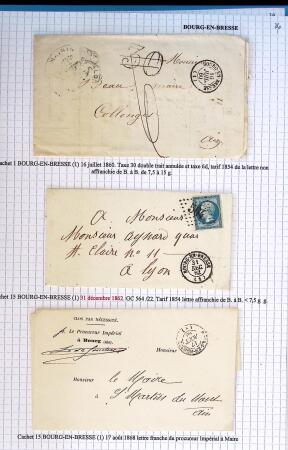 BOURG-EN-BRESSE
30
Monsieur
Beau, maire
Collonges
Ain
Cachet 1 BOURG-EN-BRESSE (1) 16 juillet 1860. Taxe 30 double trait annulée et taxe 6d, tarif 1854 de la lettre non
affranchie de B. à B. de 7,5 à 15 g.
A Monsieur
Monsieur Aynard quai
St Claire no 11
à Lyon
BOURG-EN-BRESSE
31
DEC
Cachet 15 BOURG-EN-BRESSE (1) 31 décembre 1862. GC 564 /22. Tarif 1854 lettre affranchie de B. à B. < 7,5 g.
CLOS PAR NÉCESSITÉ.
Le Procureur Impérial
à Bourg (Ain),
Monsieur
Monsieur le Maire
à St Martin du Mont
Ain
Cachet 15 BOURG-EN-BRESSE (1) 17 août 1868 lettre franche du procureur Impérial à Maire